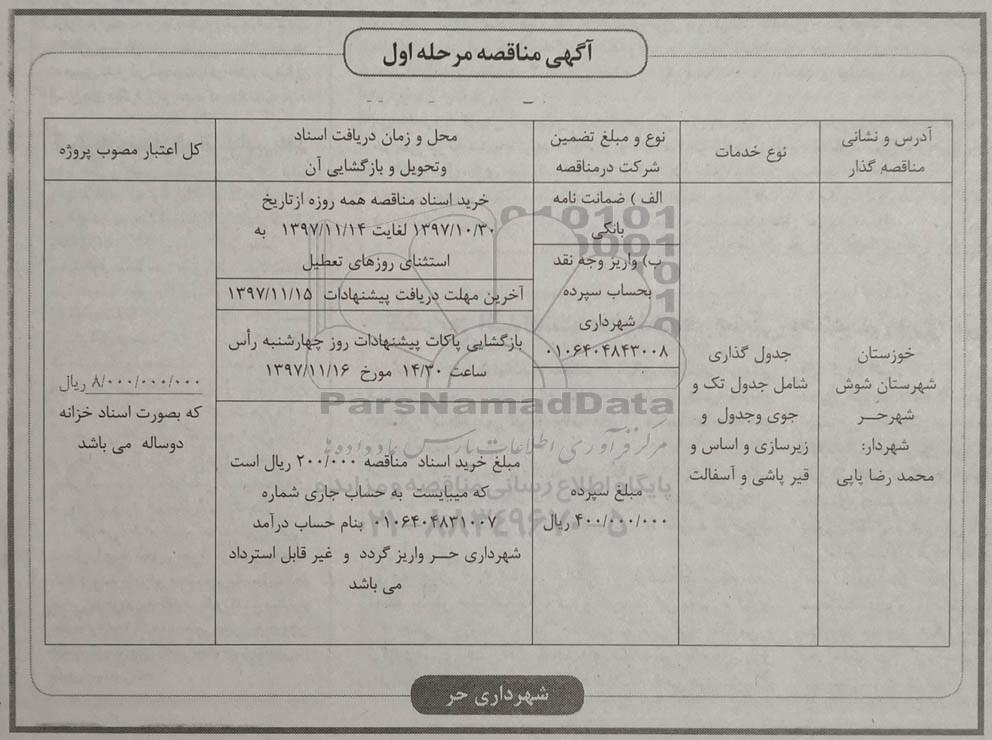 آگهی مناقصه مرحله اول
آدرس و نشانی
مناقصه گذار
نوع خدمات
نوع و مبلغ تضمین
شرکت درمناقصه
محل و زمان دریافت اسناد
وتحویل و بازگشایی آن
کل اعتبار مصوب پروژه
خوزستان
شهرستان شوش
شهرحـر
شهردار:
محمد رضا پاپی
جدول گذاری
شامل جدول تک و
جوی وجدول و
زیرسازی و اساس و
قیر پاشی و آسفالت
الف ) ضمانت نامه
بانکی
ب) واریز وجه نقد
بحساب سپرده
شهرداری
۰۱۰۶۴۰۴۸۴۳۰۰۸
مبلغ سپرده
۴۰۰/۰۰۰/۰۰۰ ریال
خرید اسناد مناقصه همه روزه ازتاریخ
۱۳۹۷/۱۰/۳۰ لغایت ۱۳۹۷/۱۱/۱۴ به
استثنای روزهای تعطیل
آخرین مهلت دریافت پیشنهادات ۱۳۹۷/۱۱/۱۵
بازگشایی پاکات پیشنهادات روز چهارشنبه رأس
ساعت ۱۴/۳۰ مورخ ۱۳۹۷/۱۱/۱۶
مبلغ خرید اسناد مناقصه ۲۰۰/۰۰۰ ریال است
که میبایست به حساب جاری شماره
۰۱۰۶۴۰۴۸۲۱۰۰۷ بنام حساب درآمد
شهرداری حـر واریز گردد و غیر قابل استرداد
می باشد
۸/۰۰۰/۰۰۰/۰۰۰ ریال
که بصورت اسناد خزانه
دوساله می باشد
شهرداری حر
ParsNamadData
مرکز فرآوری اطلاعات پارس نماد داده ها
پایگاه اطلاع رسانی مناقصه و مزایده
۰۲۱-۸۸۳۴۹۶۷۰-۵